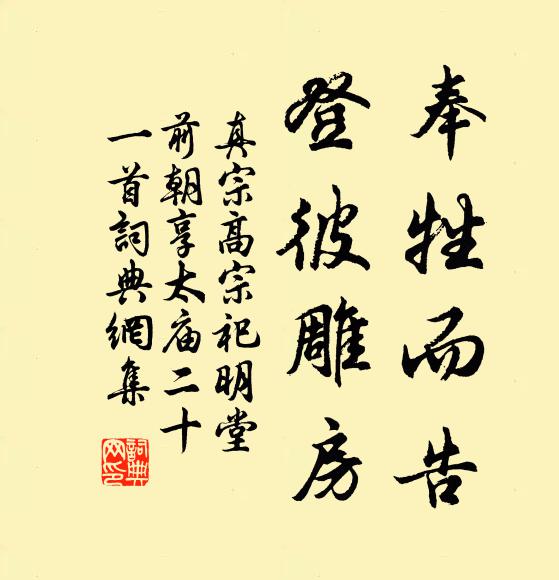 奉牲而告
登彼雕房
真宗高宗祀明堂
前朝享太庙二十
一首詞典網集
詞典
网印